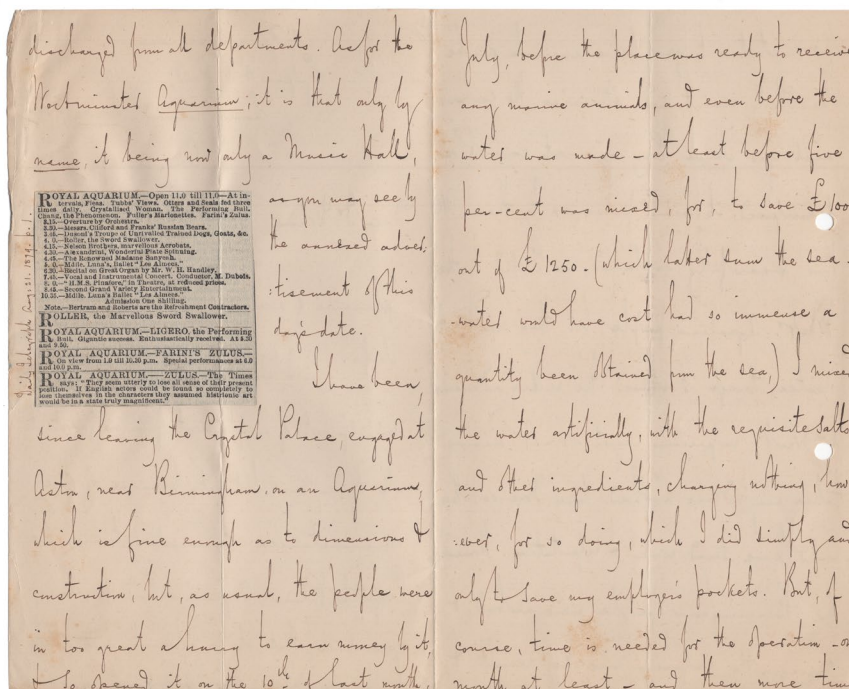 discharged from all departments. As for the
Westminster Aquarium; it is that only by
name, it being now only a Music Hall,
as you may see by
the annexed adver:
:tisement of this
day's date.
ROYAL AQUARIUM.—Open 11.0 till 11.0—At in-
tervals, Fleas. Tubbs' Views. Otters and Seals fed three
times daily. Crystallised Woman. The Performing Bull.
Chang, the Phenomenon. Fuller's Marionettes. Farini's Zulus.
3.15.—Overture by Orchestra.
3.20.—Messrs. Clifford and Franks' Russian Bears.
3.45.—Dumont's Troupe of Unrivalled Trained Dogs, Goats, &c.
4. 0.—Roller, the Sword Swallower.
4.15.—Nelson Brothers, marvellous Acrobats.
4.30.—Alexandrini, Wonderful Plate Spinning.
4.45.—The Renowned Madame Sanyeah.
5. 0.—Mdlle. Luna's Ballet "Les Almees."
6.30.—Recital on Great Organ by Mr. W. H. Handley.
7.45.—Vocal and Instrumental Concert. Conductor, M. Dubois.
8. 0.—"H.M.S. Pinafore," in Theatre, at reduced prices.
8.45.—Second Grand Variety Entertainment.
10.35.—Mdlle. Luna's Ballet "Les Almees."
Admission One Shilling.
Note.—Bertram and Roberts are the Refreshment Contractors.
ROLLER, the Marvellous Sword Swallower.
ROYAL AQUARIUM.—LIGERO, the Performing
Bull. Gigantic success. Enthusiastically received. At 5.20
and 9.50.
ROYAL AQUARIUM.—FARINI'S ZULUS.—
On view from 1.0 till 10.30 p.m. Special performances at 6.0
and 10.0 p.m.
ROYAL AQUARIUM.—ZULUS.—The Times
says: "They seem utterly to lose all sense of their present
position. If English actors could be found so completely to
lose themselves in the characters they assumed histrionic art
would be in a state truly magnificent."
Daily Telegraph Aug: 21. 1879. p. 1.
I have been,
since leaving the Crystal Palace, engaged at
Aston, near Birmingham, on an Aquarium,
which is fine enough as to dimensions &
construction, but, as usual, the people were
in too great a hurry to earn money by it,
& so opened it on the 10th of last month,
July, before the place was ready to receive
any marine animals, and even before the
water was made – at least before five
per-cent was mixed, for, to save £100
out of £1250 – (which latter sum the sea-
-water would have cost had so immense a
quantity been obtained from the sea,) I mixed
the water artificially, with the requisite salts
and other ingredients, charging nothing, how
:ever, for so doing, which I did simply and
only to save my employer's pockets. But, of
course, time is needed for the operation –
month at least – and then more time